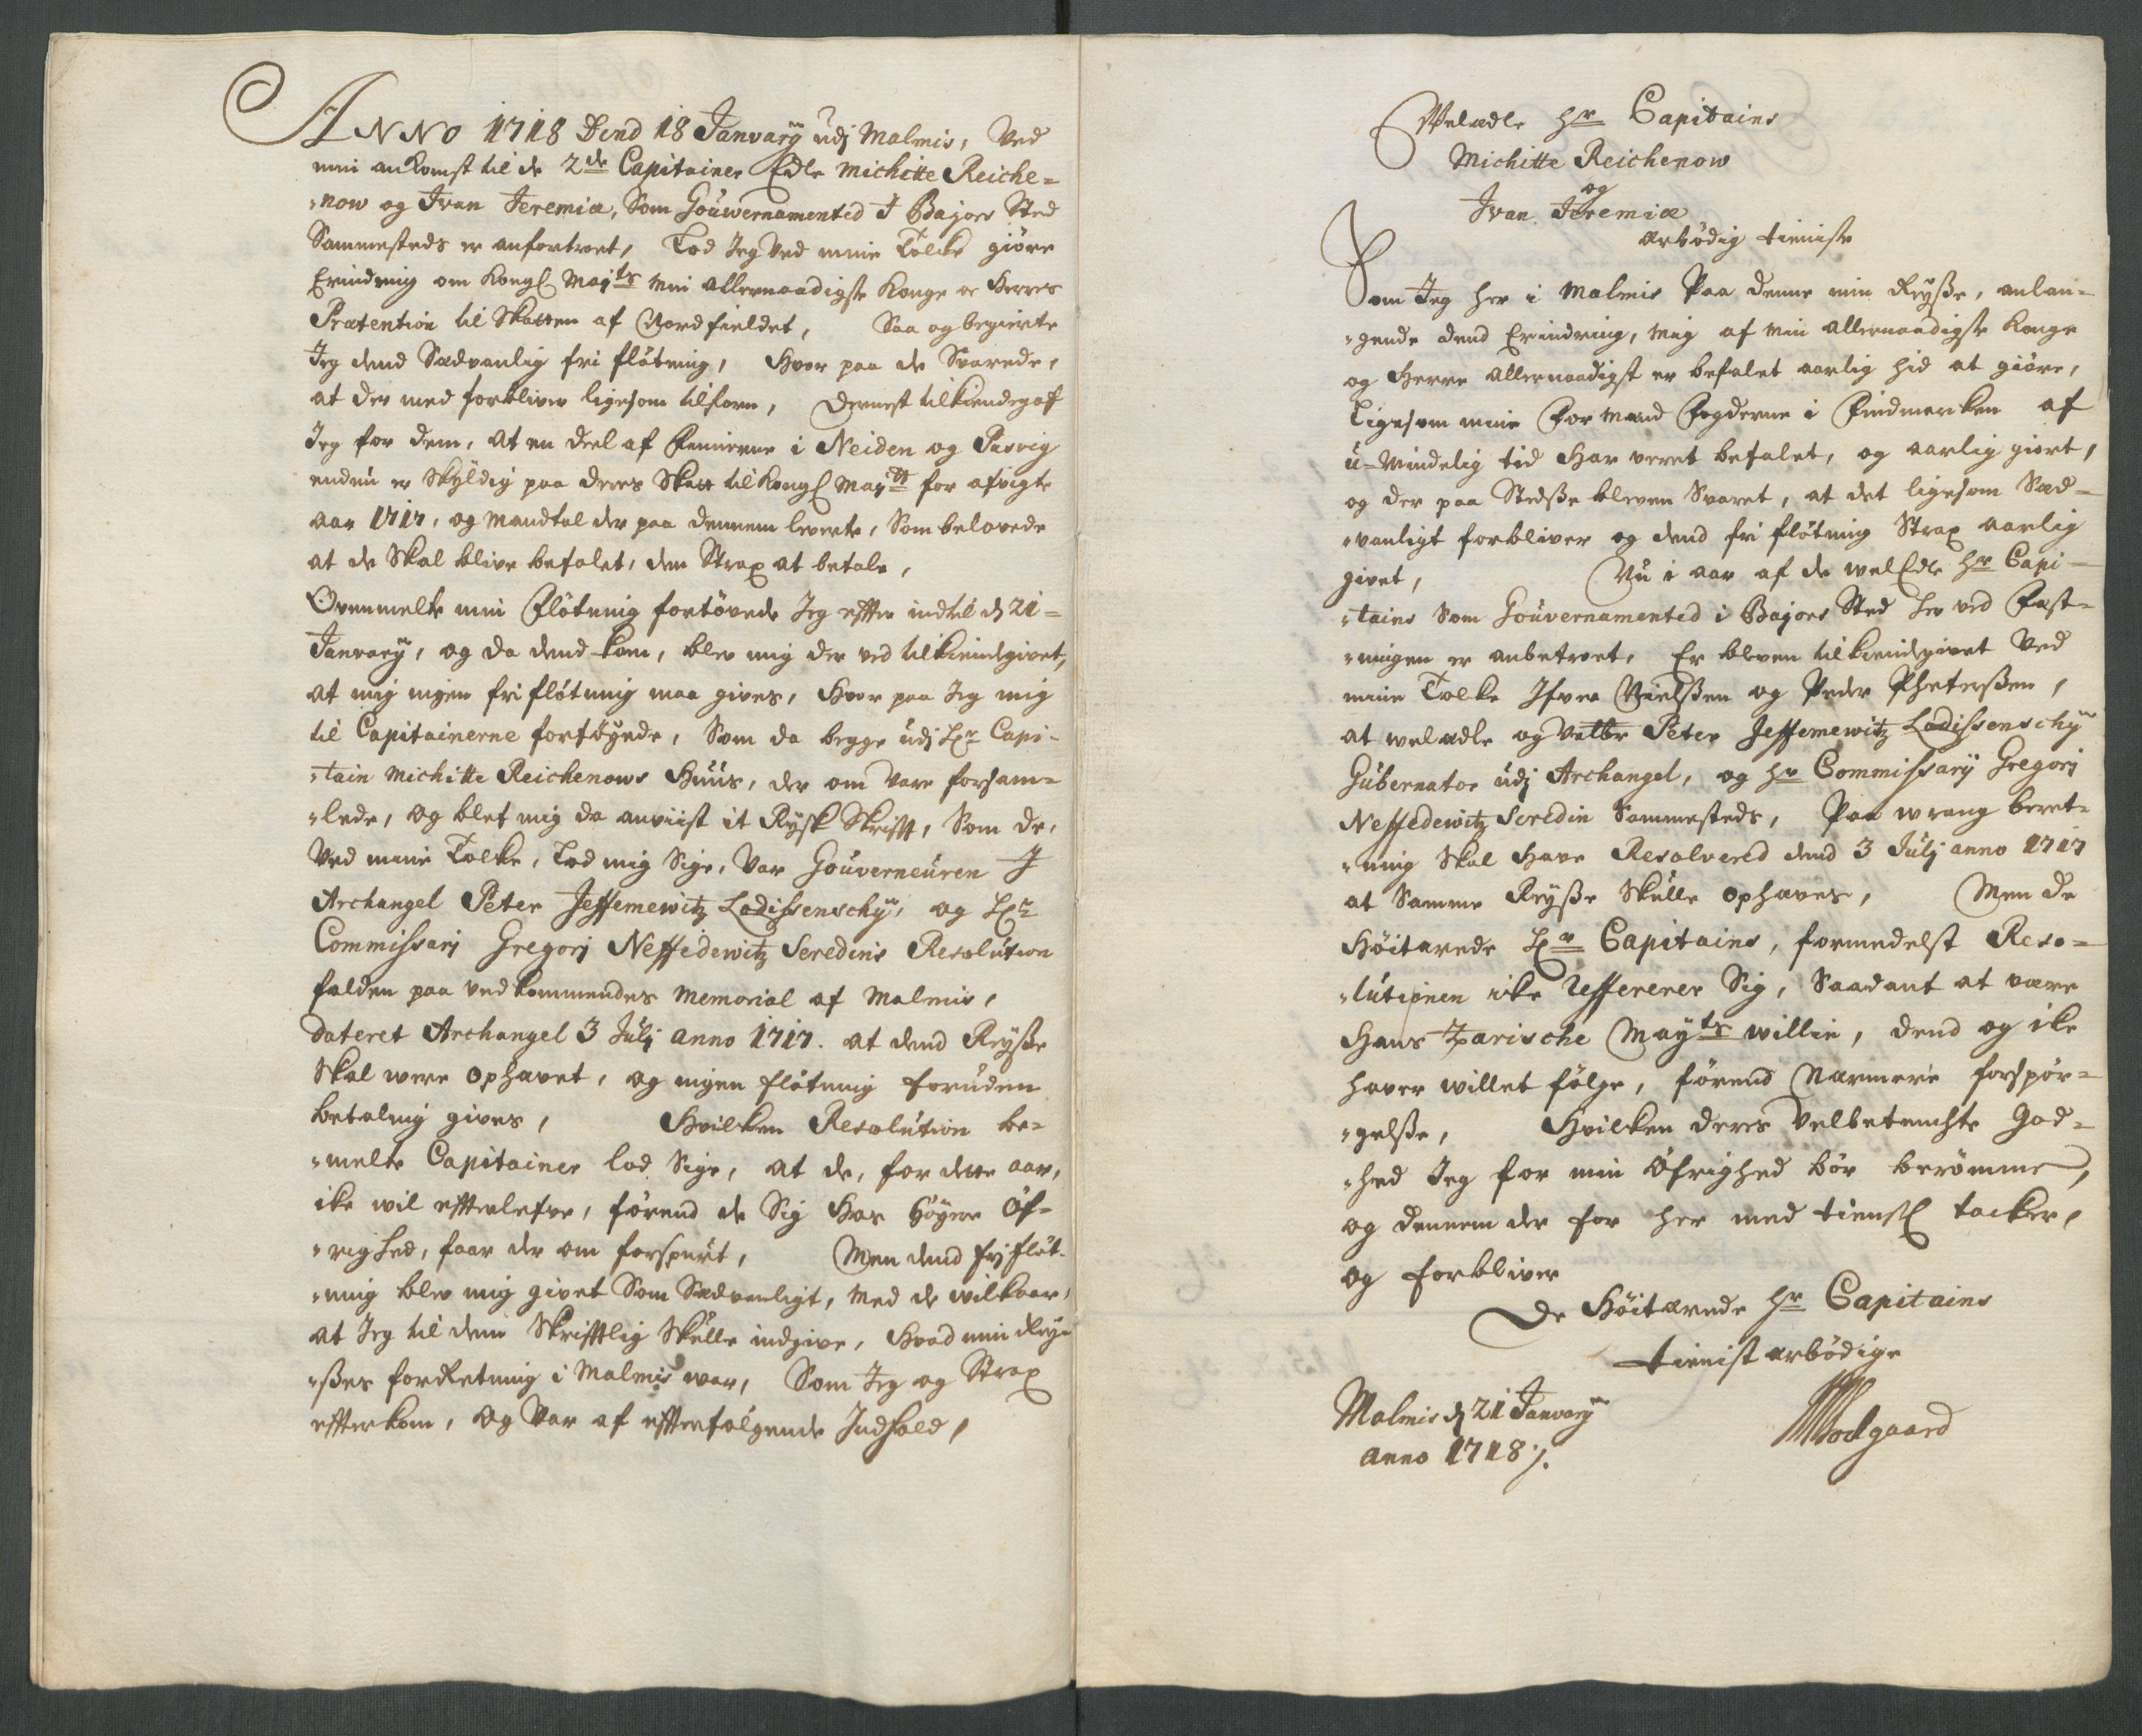 ANNO 1718 Dend 18 Janvarÿ udj Malmis, Ved
min ankomst til de 2de Capitainer Edle Michitte Reiche=
=now og Ivan Jeremiæ, Som Gouvernamented I Bajors Sted
Sammesteds er anfortroet, Lod Jeg Ved min Tolcke giöre
Erindring om Kongl Mayts min allernaadigste Konge oc Herres
Prætention til Skatten af Nordfieldet, Saa og begierte
Jeg dend Sædvanlig fri flötning, Hvor paa de Svarede,
at der med forbliver ligesom tilforn, Dernest tilkiendegaf
Jeg for dem, at en deel af Finnerne i Neiden og Pasvig
endnu er Skÿldig paa deres Skatt til Kongl Maytt for afvigte
aar 1717, og Mandtal der paa dennem leverte, Som belovede
at de Skal blive befalet, dem Strax at betale,
Ovenmelte min Flötning fortövede Jeg effter indtil d 21=
Janvarÿ, og da dend kom, blev mig der ved tilkiendgivet,
at mig ingen fri flötning maa gives, Hvor paa Jeg mig
til Capitainerne forföÿede, Som da begge udj Hr Capi=
=tain Michitte Reichenows Huus, der om Vare forsam=
=lede, og blef mig da anviist it Rysk Skrifft, Som de,
Ved mine Tolke, Lod mig Sige, Var Gouverneuren I
Archangel Peter Jeffemewitz Ladissenschÿ, og Hr
Commissarj Gregorj Neffedewitz Seredins Resolution
falden paa vedkommendes Memorial af Malmis,
dateret Archangel 3 Julj anno 1717. at dend Reÿsse
Skal were ophævet, og ingen flötning foruden
betaling gives, Hvilken Resolution be=
=melte Capitainer lod Sige, at de, for dette aar,
ike wil effterlefve, förend de Sig Hos Höyere Öf=
=righed, faar der om forspurt, Men dend frj flöt=
=ning blev mig givet Som Sædvanligt, med de vilkaar,
at Jeg til dem Skrifftlig Skulle indgive, Hvad min Reÿ=
=sses forRetning i Malmis war, Som Jeg og Strax
effterkom, og Var af effterfölgende Indhold,
Velædle Hr Capitains
Michitte Reichenow
og
Ivan Jeremiæ
ærbödig tieniste
Som Jeg her i Malmis Paa denne min Reÿsse, anlan=
=gende dend Erindring, mig af min allernaadigste Konge
og Herre allernaadigst er befalet aarlig hid at giöre,
Ligesom mine For Mænd Fogderne i Findmarken af
u=Mindelig tid Har veret befalet, og aarlig giort,
og der paa Stedsse bleven Svaret, at det ligesom Sæd=
=vanligt forbliver og dend fri flötning Strax aarlig
givet, Nu i aar af de welEdle Hr Capi=
=tains Som Gouvernamented i Bajors Sted her ved Fæst=
=ningen er anbetroet, Er bleven tilkiendgivet Ved
mine Tolke Ifver Nielssen og Peder Phetersen,
at welædle og Velbr Peter Jeffemewitz Ladissenschÿ
Gubernator udj Archangel, og Hr Commissarÿ Gregorj
Neffedewitz Seredin Sammesteds, Paa wrang beret=
=ning Skal Have Resolvered dend 3 Julj anno 1717
at Samme Reÿsse Skulle ophæves, Men de
Höitærede Hr Capitains, formedelst Reso=
=lutionen icke Reffererer Sig, Saadant at være
Hans Tzarische Mayts willie, dend og ike
haver willet fölge, förend Nærmere forspör=
=gelsse, Hvilken deres Velbetenchte God=
=hed Jeg for min Öfrighed bör berömme,
og dennem der for her med tienstl tacker,
og forbliver
De Höitærede Hr Capitains
tienist ærbödige
Malmis d 21 Janvarÿ
anno 1718 /.
Sodgaard